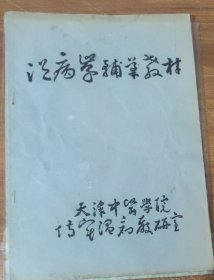 温病学辅导教材
天津中医学院
伤寒温病教研室